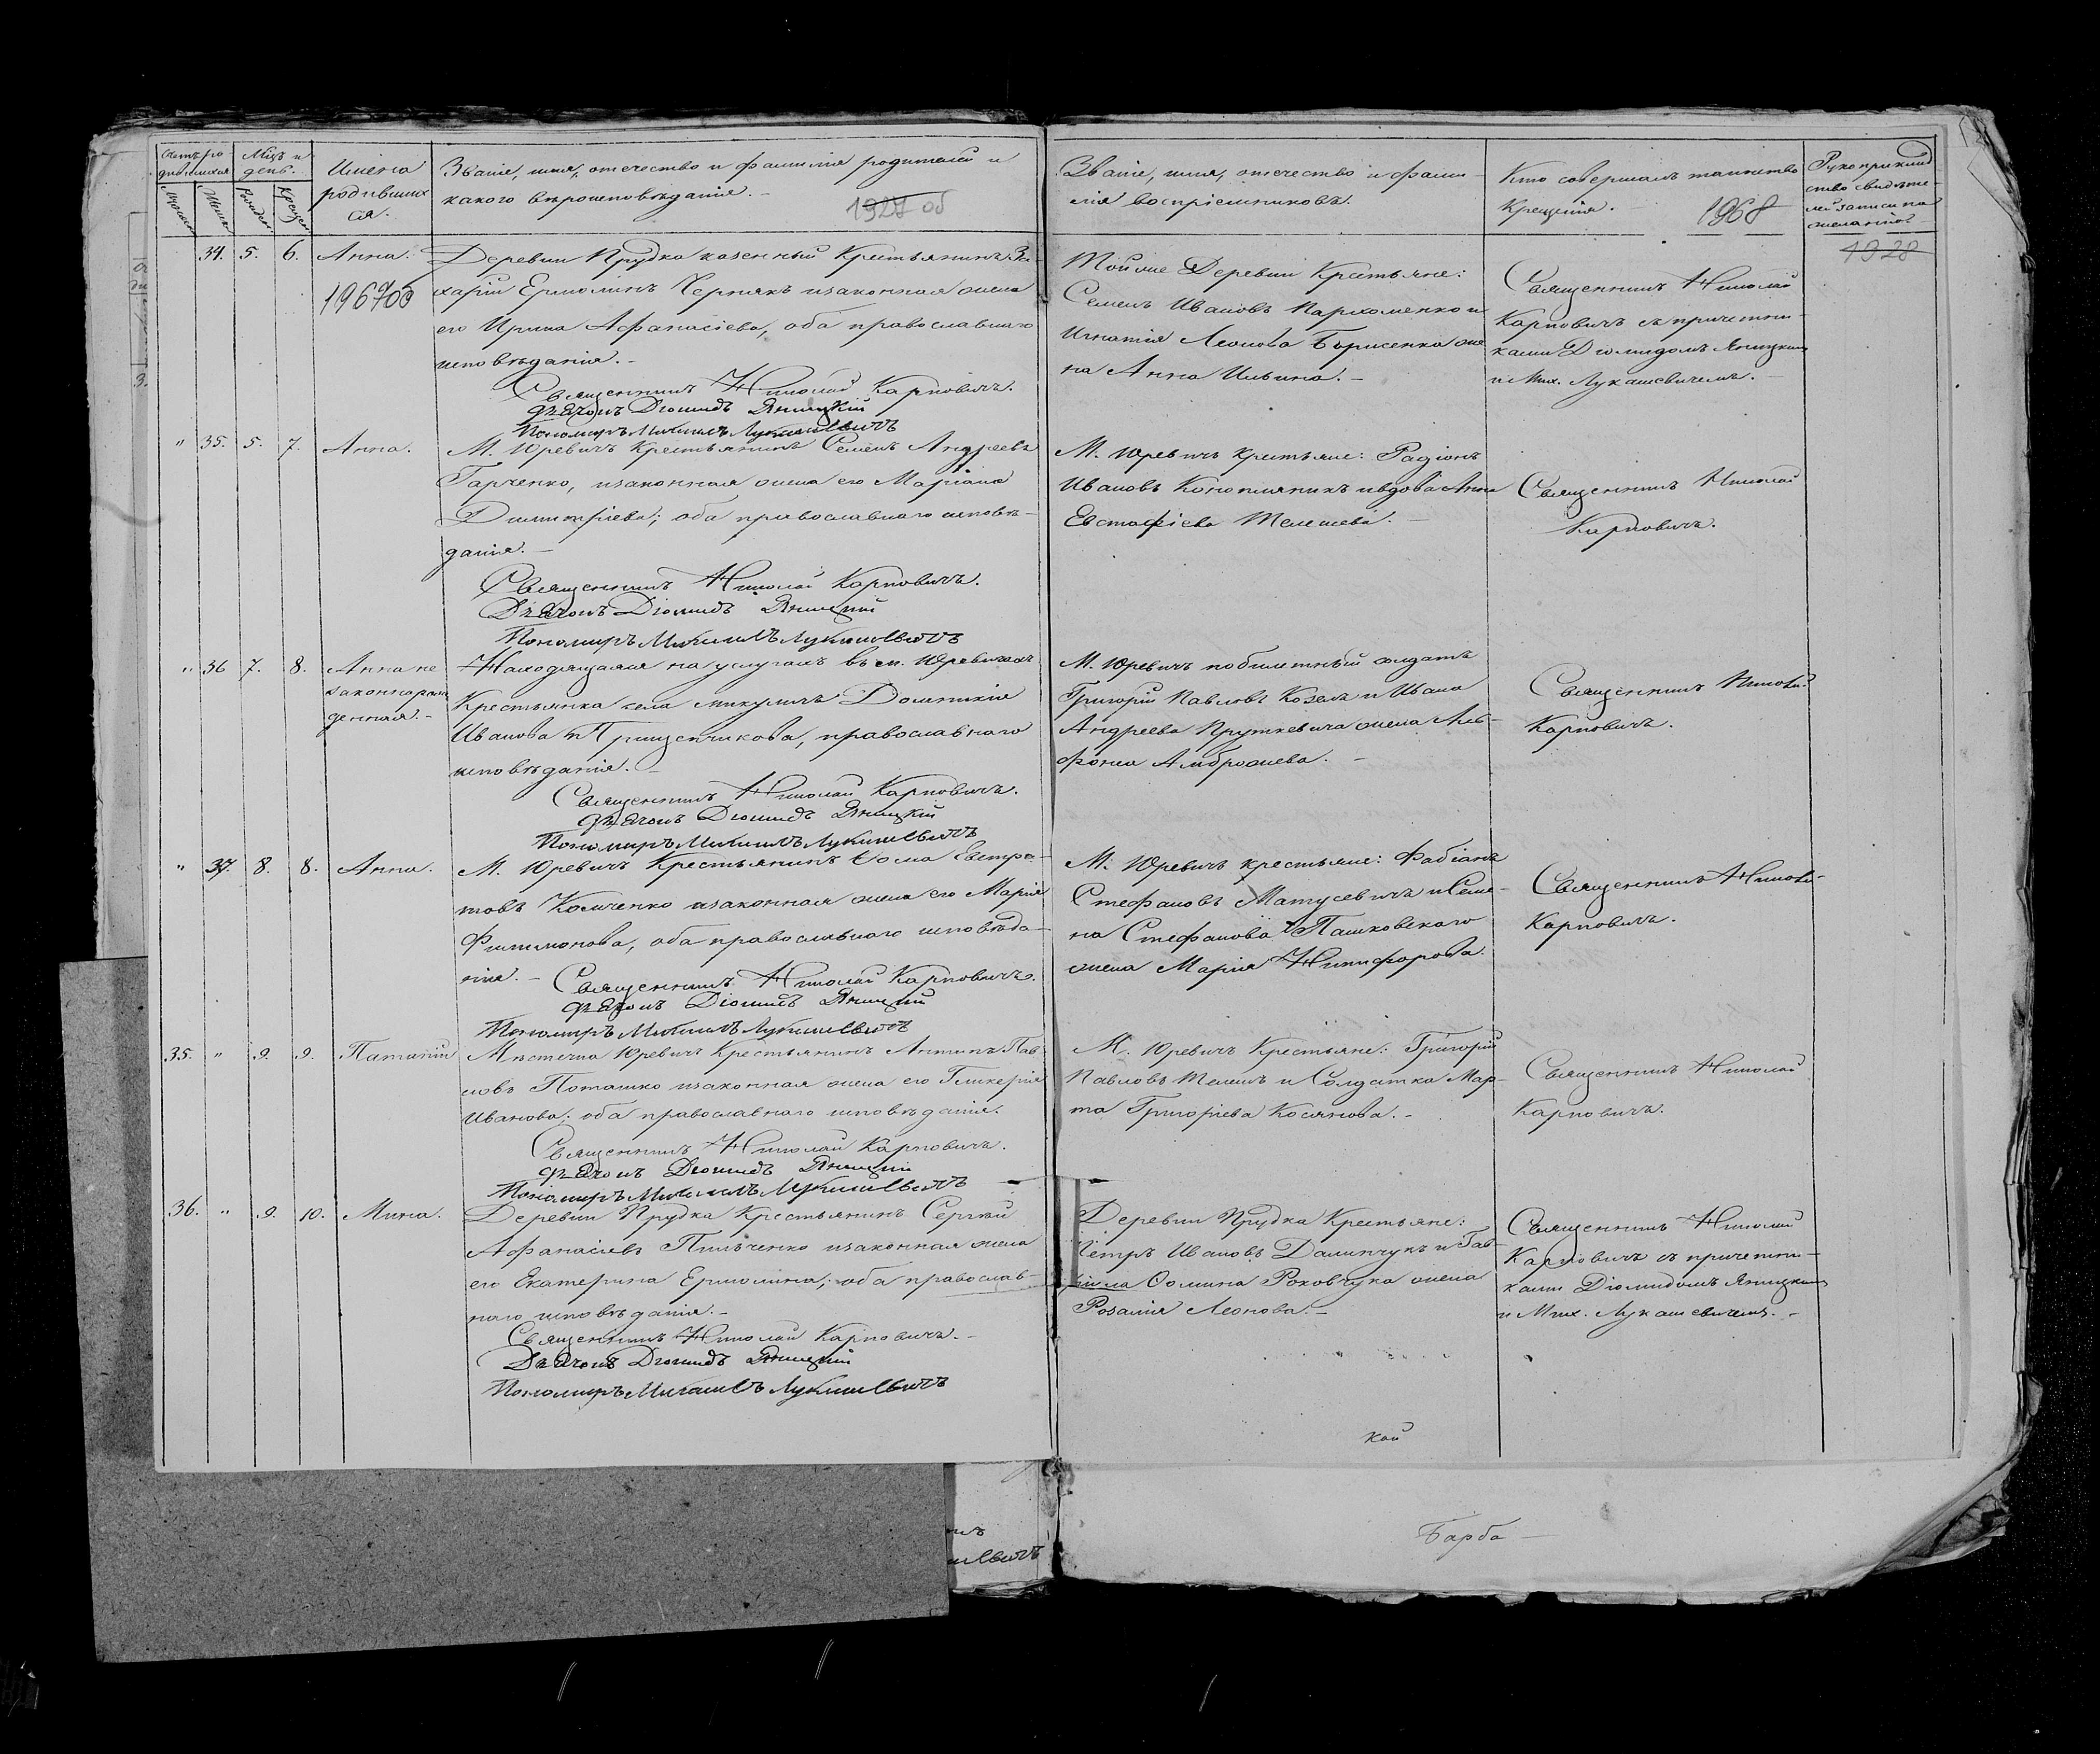 Счетъ ро
дившихся
Мѣц. и
день.
Имена
родивших
ся.
Званіе, имя, отечество и фамилія родителей и
какого вѣроисповѣданія. -
1927 об
Званіе, имя, отечество и фами-
лія воспріемниковъ.
Кто совершалъ таинство
Крещенія.
1968
Рукоприклад
ство свидѣте-
лей записи по
желанію.
1928
34. 5. 6. Анна.
1967об
Деревни Прудка казенный Крестьянинъ За-
харій Ермолинъ Чернякъ изаконная жена
его Ирина Афанасіева, оба православнаго
исповѣданія. -
Священникъ Николай Карповичъ.
Дьячокъ Діомидъ Яницкій
Пономарь Михаилъ Лукашевичъ
Тойже Деревни Крестьяне:
Семенъ Ивановъ Пархоменко и
Игнатія Леонова Борисенка же
на Анна Ильина. -
Священникъ Николай
Карповичъ съ причетни-
ками Діомидомъ Яницкимъ
и Мих. Лукашевичемъ. -
" 35. 5. 7. Анна.
М. Юревичъ Крестьянинъ Семенъ Андреевъ
Гарченко, изаконная жена его Маріана
Димитріева; оба православнаго исповѣ-
данія. -
Священникъ Николай Карповичъ.
Дьячокъ Діомидъ Яницкій
Пономарь Михаилъ Лукашевичъ
М. Юревичъ крестьяне: Радіонъ
Ивановъ Конопляникъ ивдова Анна
Евстафіева Телешева. -
Священникъ Николай
Карповичъ.
" 36 7. 8. Анна не
законнорож
денная. -
Находящаяся на услугахъ въ м. Юревичахъ
Крестьянка села Микуличъ Домникія
Иванова Прищепчикова, православнаго
исповѣданія. -
Священникъ Николай Карповичъ.
Дьячокъ Діомидъ Яницкій
Пономарь Михаилъ Лукашевичъ
М. Юревичъ побилетный солдатъ
Григорій Павловъ Козелъ и Ивана
Андреева Пруткевича жена Аг-
фонія Амбросиева. -
Священникъ Николай
Карповичъ.
" 37. 8. 8. Анна.
М. Юревичъ Крестьянинъ Ѳома Евстра-
товъ Комченко изаконная жена его Марія
Филимонова, оба православнаго исповѣда-
нія. - Священникъ Николай Карповичъ.
Дьячокъ Діомидъ Яницкій
Пономарь Михаилъ Лукашевичъ
М. Юревичъ крестьяне: Фабіанъ
Стефановъ Матусевичъ и Семе-
на Стефанова Пашковскаго
жена Марія Никифорова.
Священникъ Николай
Карповичъ.
35. " 9. 9. Патапій
Мѣстечка Юревичъ Крестьянинъ Антипъ Пав-
ловъ Поташко изаконная жена его Гликерія
Иванова; оба православнаго исповѣданія.
Священникъ Николай Карповичъ.
Дьячокъ Діомидъ Яницкій
Пономарь Михаилъ Лукашевичъ
М. Юревичъ Крестьяне: Григорій
Павловъ Телешъ и Солдатка Мар-
та Григоріева Косянова. -
Священникъ Николай
Карповичъ.
36. " 9. 10. Мина.
Деревни Прудка Крестьянинъ Сергій
Афанасіевъ Пильченко изаконная жена
его Екатерина Ермолина; оба православ-
наго исповѣданія. -
Священникъ Николай Карповичъ. -
Дьячокъ Діомидъ Яницкій
Пономарь Михаилъ Лукашевичъ
Деревни Прудка Крестьяне:
Петръ Ивановъ Далинчукъ и Гав-
ріила Ѳомина Роховчука жена
Розалія Леонова. -
Священникъ Николай
Карповичъ съ причетни-
ками Діомидомъ Яницкимъ
и Мих. Лукашевичемъ. -
кой
Барба -